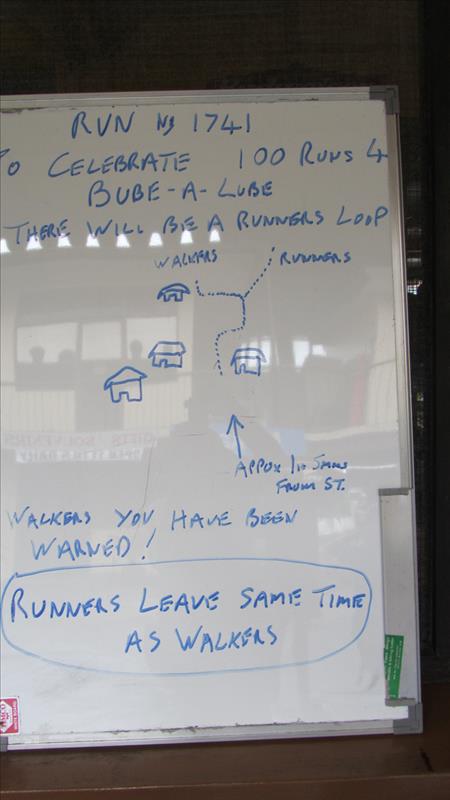 RUN No 1741
TO CELEBRATE 100 RUNS 4
BUBE-A-LUBE
THERE WILL BE A RUNNERS LOOP
WALKERS RUNNERS
APPOX
FROM ST.
WALKERS YOU HAVE BEEN
WARNED!
RUNNERS LEAVE SAME TIME
AS WALKERS